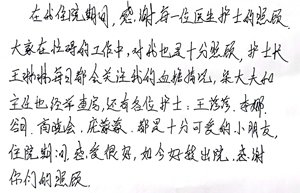 在我住院期间,感谢每一位医生护士的照顾
大家在忙碌的工作中,对我也是十分照顾,护士长
王彬彬每日都会关注我的血糖情况,朱大夫和
主任也经常查房,还有各位护士:王莎莎、李娜、
商晓会、庞蒙蒙、都是十分可爱的小朋友,
住院期间感受很好,如今好转出院,感谢
你们的照顾.